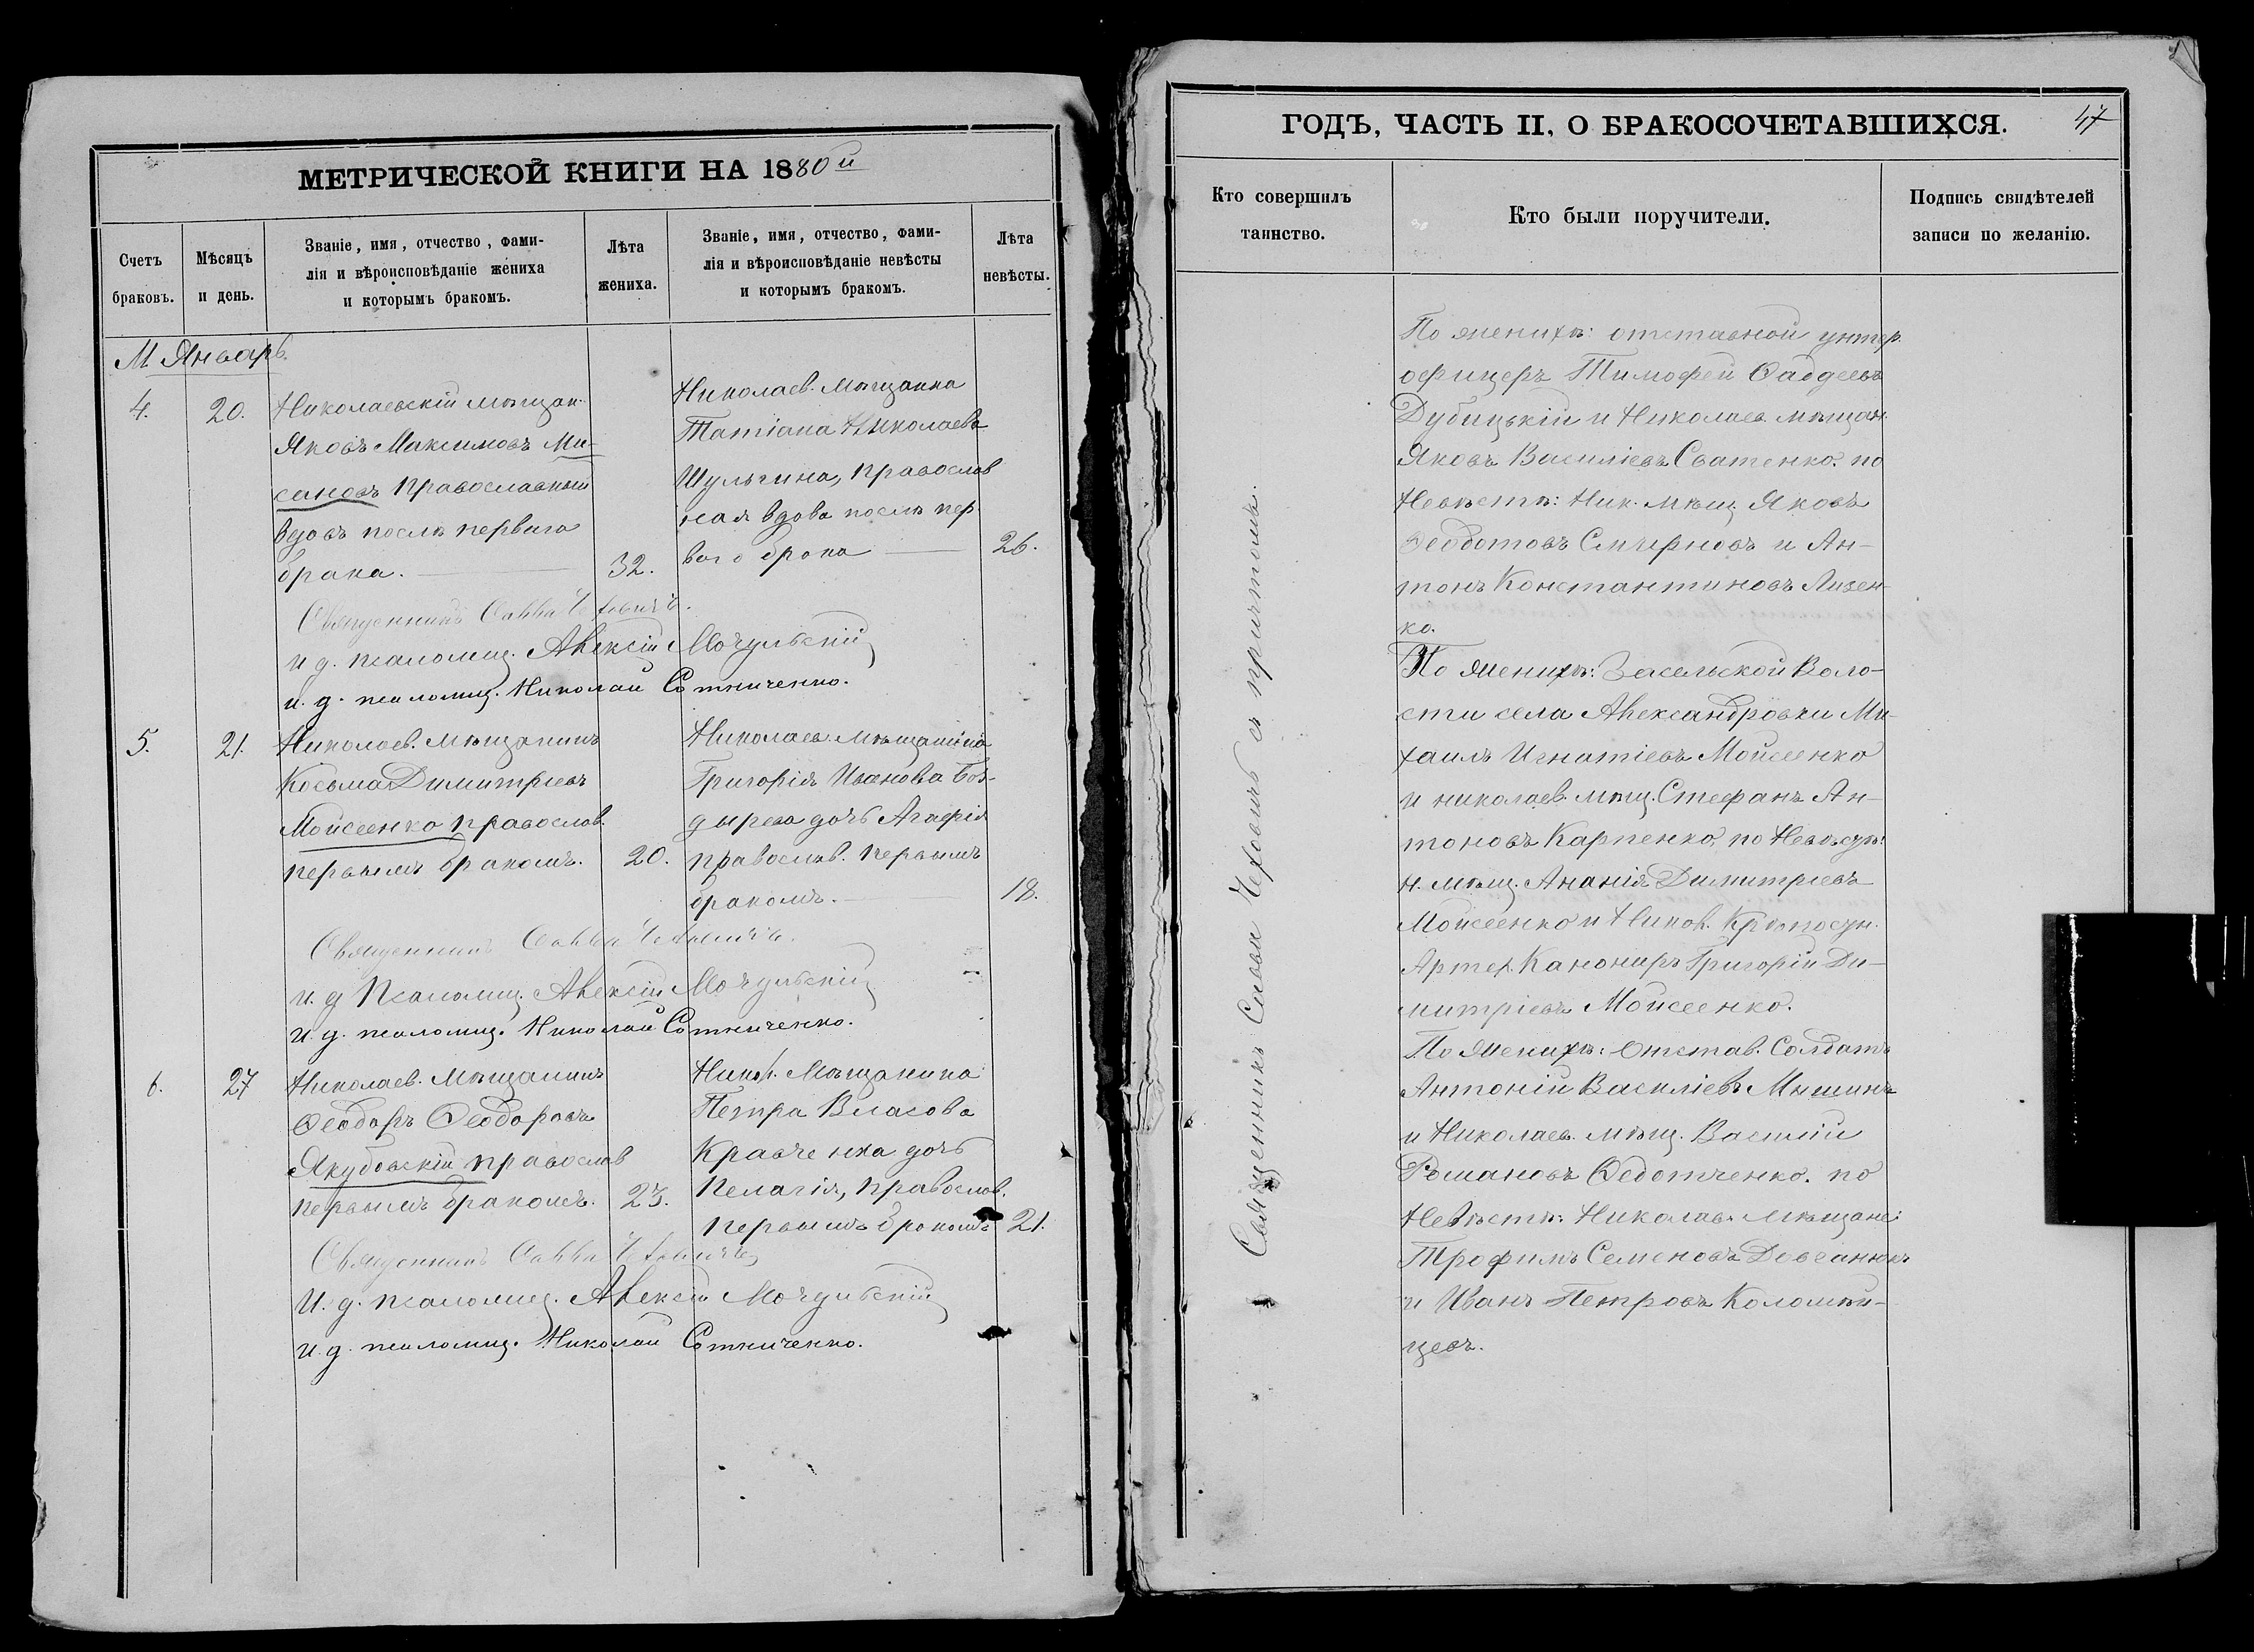 МЕТРИЧЕСКОЙ КНИГИ НА 1880й
Счетъ браковъ.
Мѣсяцъ и день.
Званіе, имя, отчество, фами-
лія и вѣроисповѣданіе жениха
и которымъ бракомъ.
Лѣта жениха.
Званіе, имя, отчество, фами-
лія и вѣроисповѣданіе невѣсты
и которымъ бракомъ.
Лѣта невѣсты.
М. Январь.
4. 20.
Николаевскій мѣщан.
Яковъ Максимовъ Ми-
сановъ православный
вдовъ послѣ перваго
брака. 32.
Николаев. мѣщанка
Татіана Николаева
Шульгина, православ
ная вдова послѣ пер
ваго брака 26.
Священникъ Савва Чехович.
и д. псаломщ. Алексій Мочульскій
и. д. псаломщ. Николай Сотниченко.
5. 21.
Николаев. мѣщанинъ
Косьма Димитріевъ
Мойсеенко православ.
первымъ бракомъ. 20.
Николаев мѣщанина
Григорія Иванова Бон-
дырева дочь Агафія
православ. первымъ
бракомъ. 18.
Священникъ Савва Чехович.
и. д. Псаломщ. Алексій Мочульскій
и. д. псаломщ. Николай Сотниченко.
6. 27
Николаев. Мѣщанинъ
Ѳеодоръ Ѳеодоровъ
Якубовскій православ
первымъ бракомъ. 23.
Никол. Мѣщанина
Петра Власова
Кравченка дочь
Пелагія, православ.
первымъ бракомъ 21.
Священникъ Савва Чехович
И. д. псаломщ. Алексій Мочульскій
и. д. псаломщ. Николай Сотниченко.
ГОДЪ, ЧАСТЬ II, О БРАКОСОЧЕТАВШИХСЯ.
47
Кто совершилъ
таинство.
Кто были поручители.
Подпись свидѣтелей
записи по желанію.
Священникъ Савва Чеховичъ съ причтомъ.
По женихѣ: отставной унтер.
офицеръ Тимофей Фаддеевъ
Дубицькій и Николаев. мѣщан.
Яковъ Василіевъ Сватенко. по
Невѣстѣ: Ник. мѣщ. Яковъ
Ѳеодотовъ Смирновъ и Ан-
тонъ Константиновъ Лизен-
ко.
По женихѣ: Засельской Воло-
сти села Александровки Ми-
хаилъ Игнатіевъ Мойсеенко
и николаев. мѣщ. Стефанъ Ан-
тоновъ Карпенко, по Невѣстѣ:
н. мѣщ. Ананія Димитріевъ
Мойсеенко и Никол. Крѣпостн.
Артел. Канониръ Григорій Ди-
митріевъ Мойсеенко.
По женихѣ: Отстав. Солдатъ
Антоній Василіевъ Мышинъ
и Николаев. мѣщ. Василій
Романовъ Ѳедотченко. по
Невѣстѣ: Николаев. мѣщане:
Трофимъ Семеновъ Довганюкъ
и Иванъ Петровъ Коломий-
цевъ.